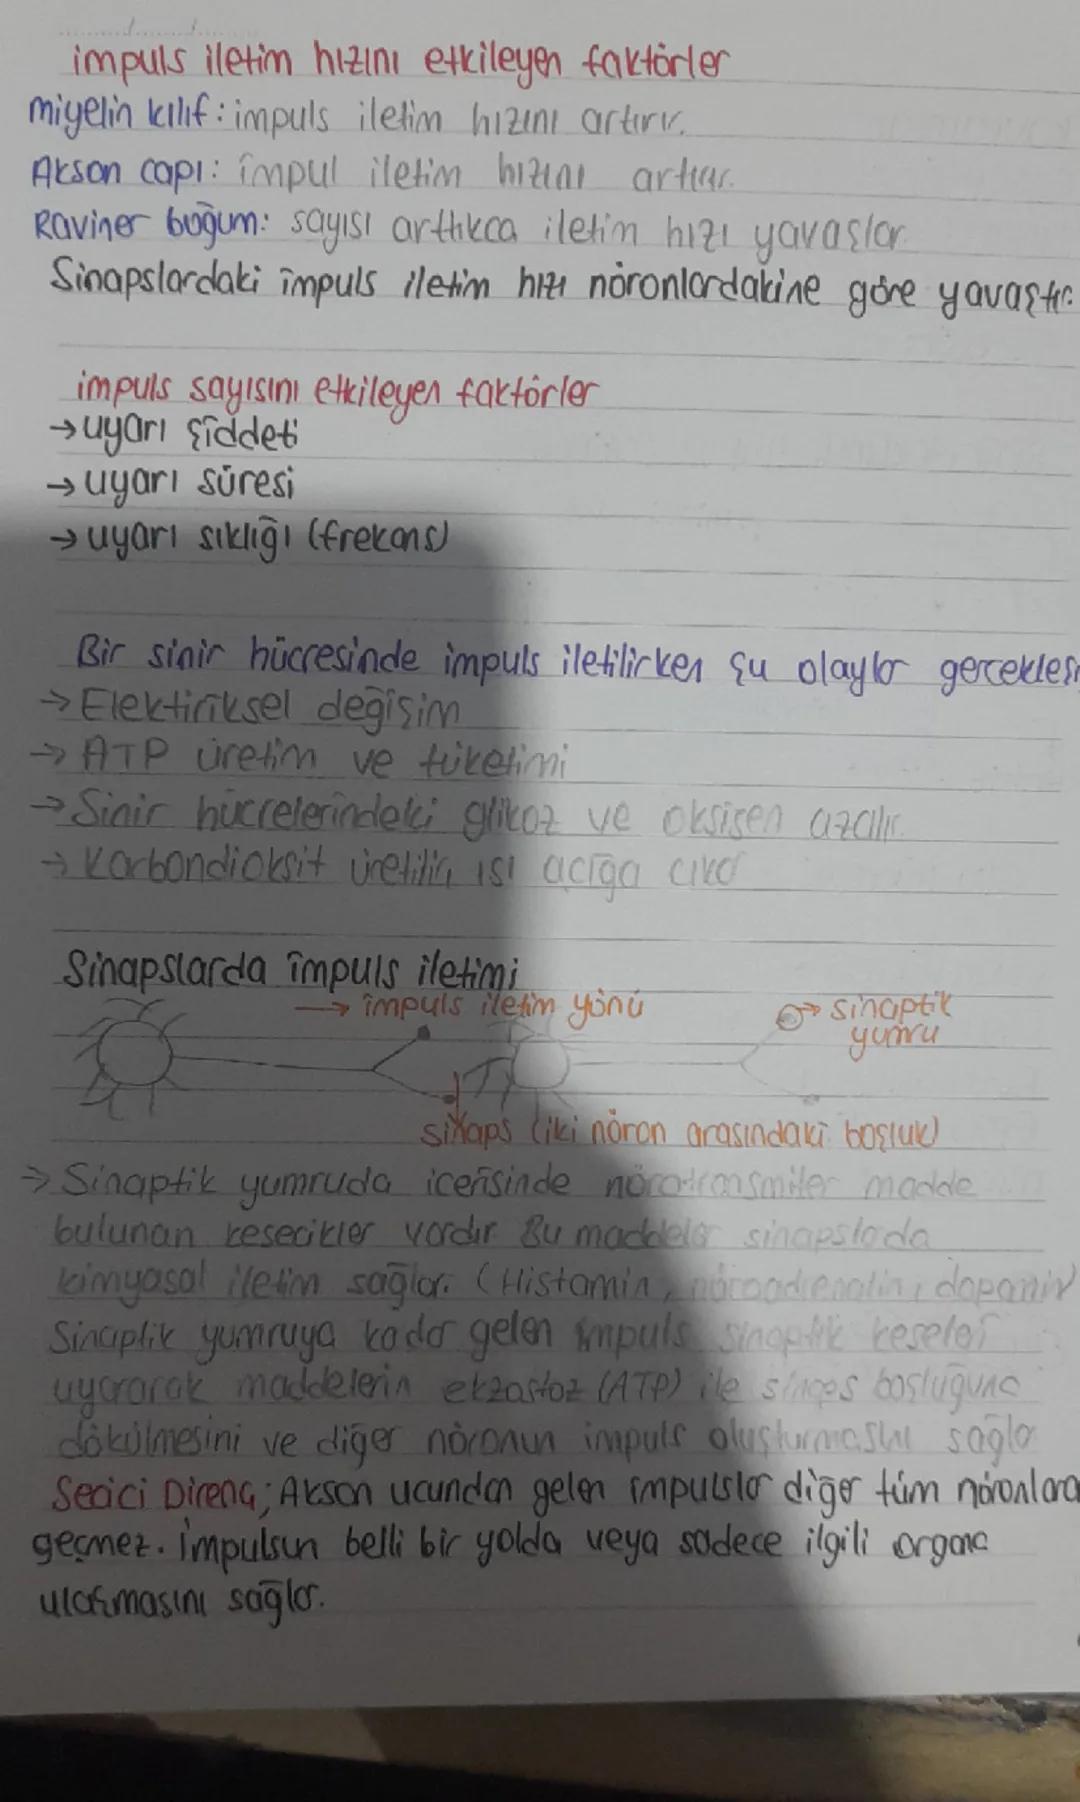 impuls iletim hızını etkileyen faktörler
miyelin kılıf: impuls iletim hızını artırır.
Akson capı: impul iletim hızını artırır.
Raviner boğum: sayısı arttıkca iletim hızı yavaşlar
Sinapslardaki impuls iletim hızı nöronlardakine göre yavaştır.
impuls sayısını etkileyen faktörler
→ uyarı şiddeti
→ uyarı süresi
→ uyarı sıklığı (frekans)
Bir sinir hücresinde impuls iletilirken şu olaylar gerçekleşir
→ Elektiriksel değişim
→ ATP üretim ve tüketimi
→ Sinir hücrelerindeki glikoz ve oksijen azalır.
→ Karbondioksit üretilir, ısı açığa çıkar
Sinapslarda impuls iletimi
→ impuls iletim yönü
→ sinaptik
yumru
sinaps (iki nöron arasındaki boşluk)
→ Sinaptik yumruda icerisinde nörotransmiter madde
bulunan kesecikler vardır Bu maddeler sinapslada
kimyasal iletim sağlar. (Histamin, nöroadrenalin, dopamin)
Sinaptik yumruya kadar gelen impuls sinaptik keseleri
uyararak maddelerin ekzositoz (ATP) ile sinaps boşluğuna
dökülmesini ve diğer nöronun impuls oluşturmasını sağlar
Secici Direnç; Akson ucundan gelen impulslar diğer tüm nöronlara
geçmez. İmpulsun belli bir yolda veya sadece ilgili organa
ulaşmasını sağlar.